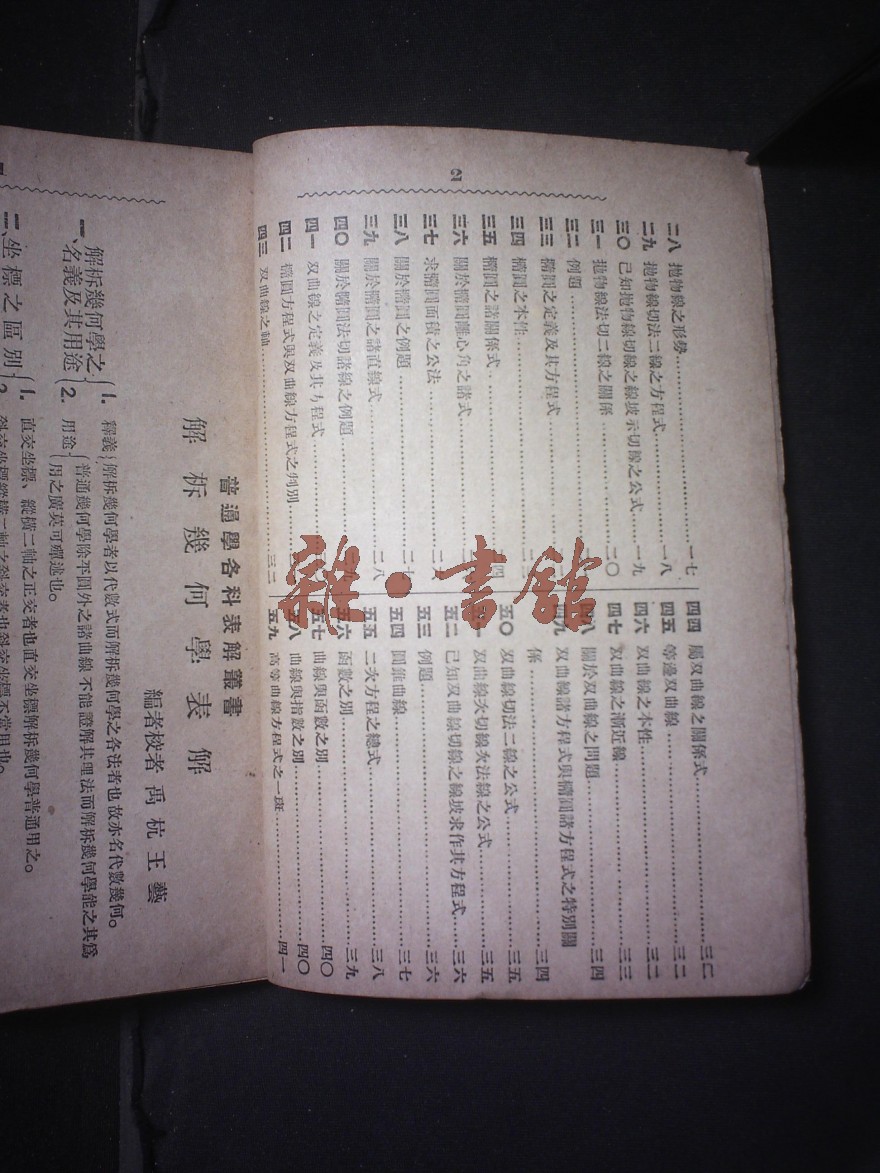 2
二八 拋物線之形勢………一七
二九 拋物線切法二線之方程式………一八
三〇 己知拋物線切線之線坡示切線之公式…一九
三一 拋物線法切二線之關係………二〇
三二 例題
三三 橢圓之定義及其方程式
三四 橢圓之本性
三五 橢圓之諸關係式
三六 關於橢圓離心角之諸式
三七 求橢圓面積之公法………二六
三八 關於橢圓之例題
三九 關於橢圓之諸直線式………二八
四〇 關於橢圓法切諸線之例題
四一 双曲線之定義及其方程式
四二 橢圓方程式與双曲線方程式之判別
四三 双曲線之軸………三二
四四 屬双曲線之關係式
四五 等邊双曲線………三二
四六 双曲線之本性………三二
四七 双曲線之漸近線………三三
四八 關於双曲線之問題………三四
四九 双曲線諸方程式與橢圓諸方程式之特別關
係………三四
五〇 双曲線切法二線之公式………三五
五一 双曲線次切線次法線之公式………三五
五二 己知双曲線切線之線坡求作其方程式…三六
五三 例題………三六
五四 圓錐曲線………三七
五五 二次方程之總式………三八
五六 函數之別………三九
五七 曲線與函數之別………四〇
五八 曲線與指數之別………四〇
五九 高等曲線方程式之一斑………四一
普通學各科表解叢書
解析幾何學表解
編者校者 禹杭王藝
一、解析幾何學之名義及其用途
1. 釋義 解析幾何學者以代數式而解析幾何學之各法者也故亦名代數幾何。
2. 用途 普通幾何學除平圓外之諸曲線不能證解其理法而解析幾何學能之其爲
用之廣莫可殫述也。
二、坐標之區別
1. 直交坐標、縱橫二軸之正交者也直交坐標解析幾何學普通用之。
2. 斜交坐標縱橫二軸之斜交者也斜交坐標不常用也。
雜·書館